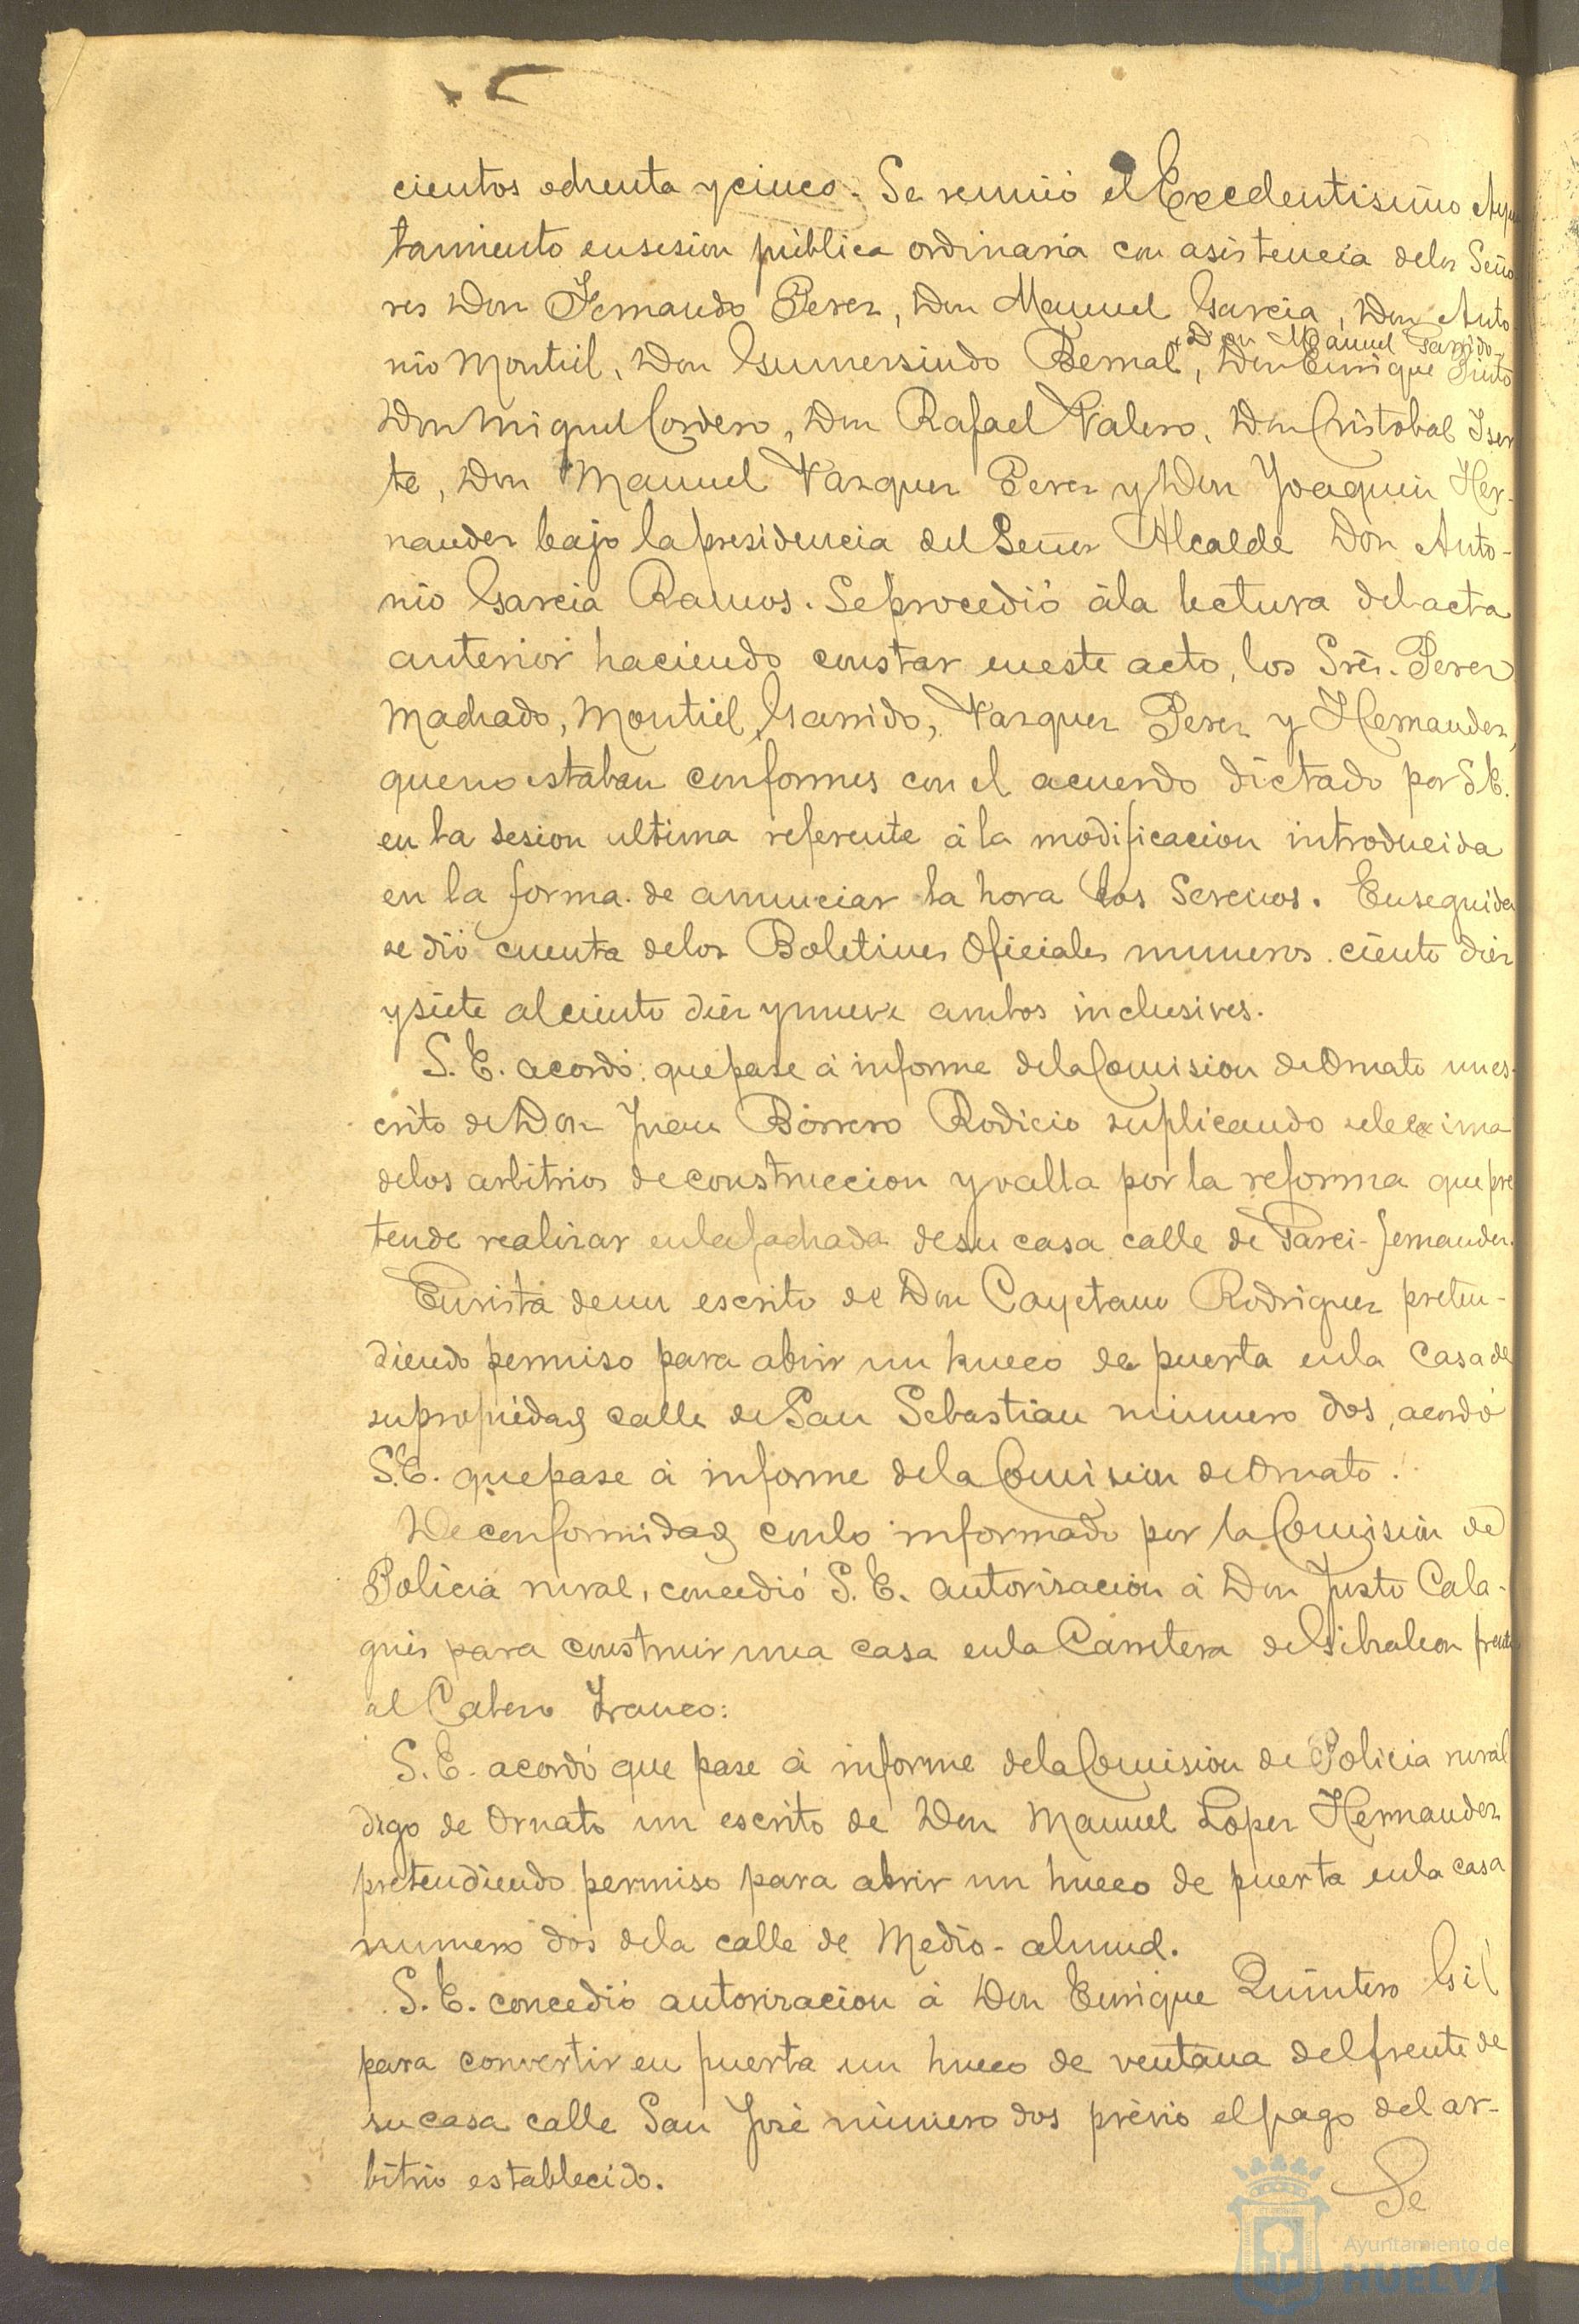 cientos ochenta y cinco. Se reunió el Excelentisimo Ayun
tamiento en sesion pública ordinaria con asistencia de los Seño
res Don Fernando Perez, Don Manuel Garcia, Don Anto
Don Manuel Garrido
nio Montiel, Don Gumersindo Bernal, Don Enrique Pinto
Don Miguel Cordero, Don Rafael Valero, Don Cristobal Iser
te, Don Manuel Vazquez Perez y Don Joaquin Her-
nandez bajo la presidencia del Señor Alcalde Don Anto-
nio Garcia Ramos. Se procedió á la lectura del acta
anterior haciendo constar en este acto, los Srés. Perez
Machado, Montiel, Garrido, Vazquez Perez y Hernandez,
que no estaban conformes con el acuerdo dictado por S.E.
en la sesion ultima referente á la modificacion introducida
en la forma de anunciar la hora los Serenos. Enseguida
se dió cuenta de los Boletines Oficiales numeros ciento diez
y siete al ciento diez y nueve ambos inclusives.
S. E. acordó que pase á informe de la Comision de Ornato un es-
crito de Don Juan Borrero Rodicio suplicando se le exima
de los arbitrios de construccion y valla por la reforma que pre
tende realizar en la fachada de su casa calle de Garci-fernandez.
En vista de un escrito de Don Cayetano Rodriguez preten-
diendo permiso para abrir un hueco de puerta en la Casa de
su propiedad calle de San Sebastian número dos, acordó
S.E. que pase á informe de la Comision de Ornato.
De conformidad con lo informado por la Comision de
Policia rural, concedió S. E. autorisacion á Don Justo Cala-
guis para construir una casa en la Carretera de Gibraleon frente
al Cabezo Franco:
S. E. acordó que pase á informe de la Comision de Policia rural
digo de Ornato un escrito de Don Manuel Lopez Hernandez
pretendiendo permiso para abrir un hueco de puerta en la casa
numero dos de la calle de Medio-almud.
S. E. concedió autorizacion á Don Enrique Quintero Gil
para convertir en puerta un hueco de ventana del frente de
su casa calle San José número dos prévio el pago del ar-
bitrio establecido.
Se
Ayuntamiento de
HUELVA